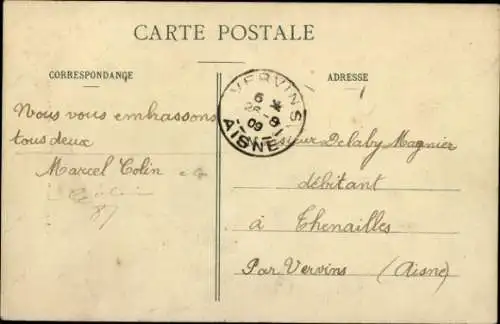 CARTE POSTALE
CORRESPONDANCE
ADRESSE
Nous vous embrassons
tous deux
Marcel Colin
87
VERVINS
6
26 - 9
09
AISNE
Monsieur Delaby Magnier
débitant
à Thenailles
Par Vervins (Aisne)